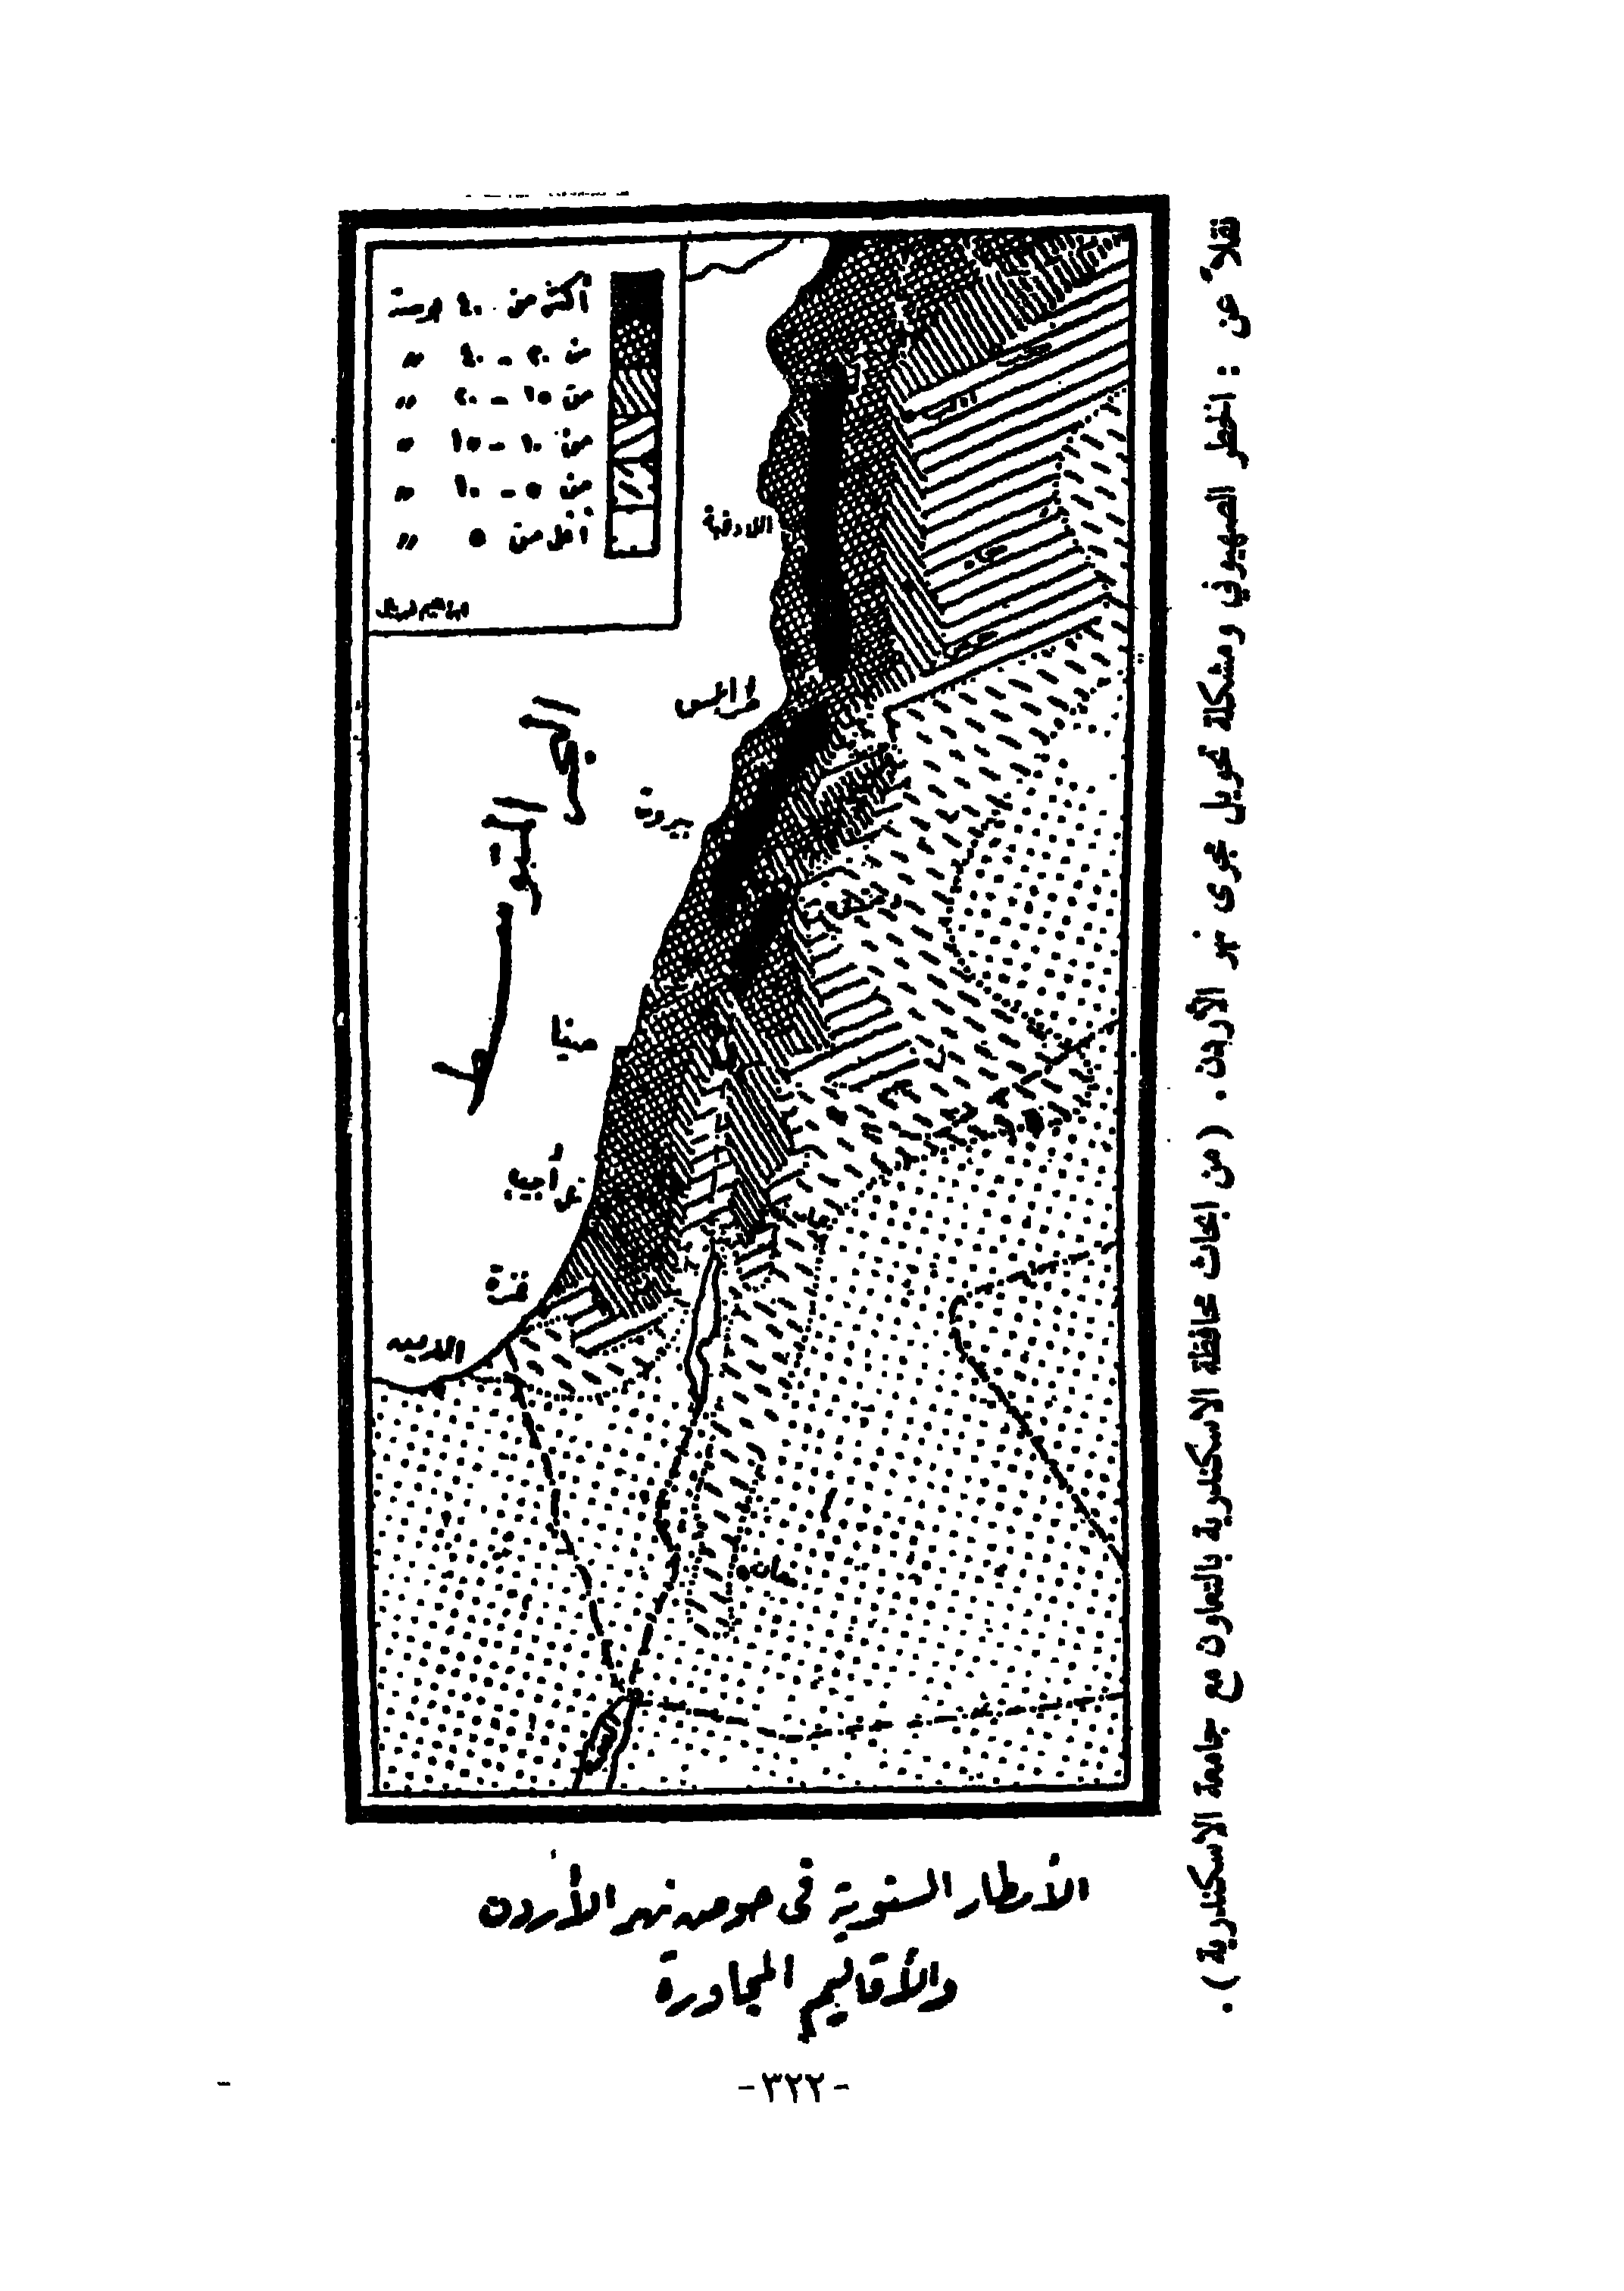 أكثر من ٤٠ بوصة
من ٢٠ - ٤٠ "
من ١٥ - ٢٠ "
من ١٠ - ١٥ "
من ٥ - ١٠ "
أقل من ٥ "
اللاذقية
طرابلس
بيروت
البحر
المتوسط
حيفا
يافا
غزة
العريش
معان
الأمطار السنوية في حوض نهر الأردن
والأقاليم المجاورة
نقلاً عن : الخطر الصهيوني ومشكلة تحويل مجرى نهر الأردن . (من ابحاث محافظة الاسكندرية بالتعاون مع جامعة الاسكندرية ) .
-٣٢٢-